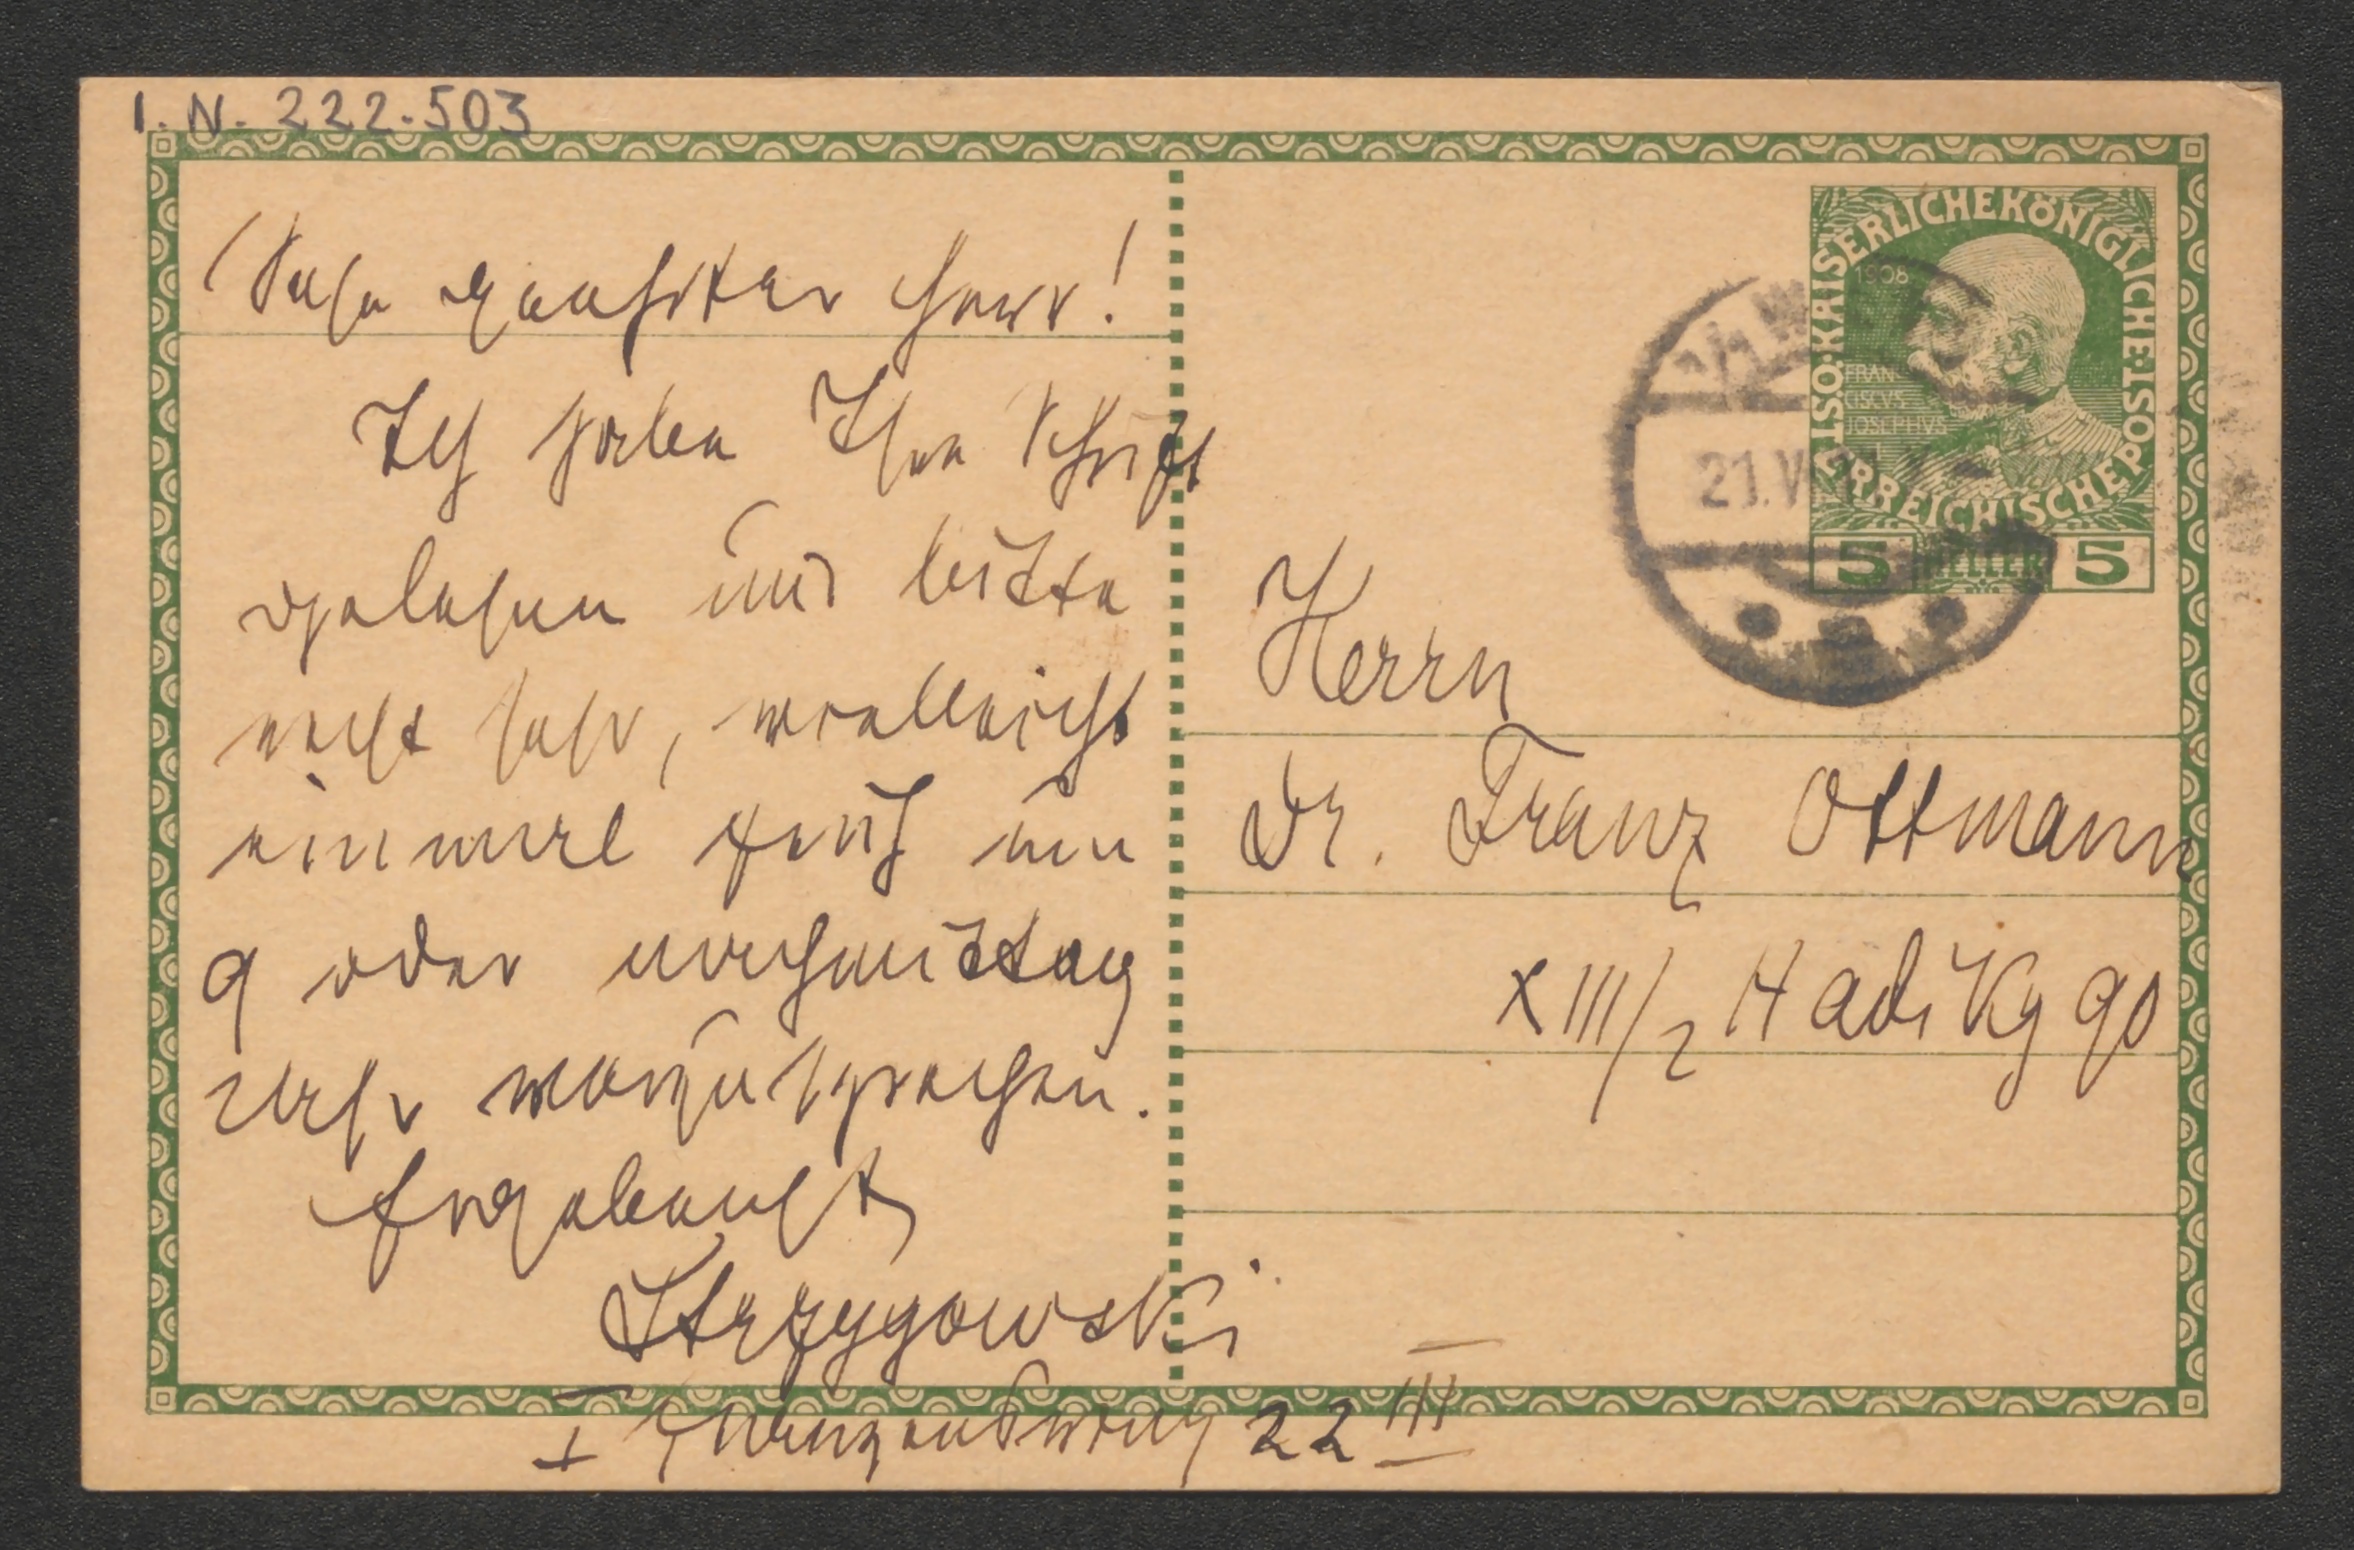 I.N. 222.503
Sehr geehrter Herr!
Ich habe Ihre Schrift
gelesen und bitte
recht sehr, vielleicht
einmal früh um
9 oder nachmittag
vorzusprechen.
Ergebenst
Strzygowski
I Franzensring 22 III
KAISERLICHEKÖNIGLICHE
ÖSTERREICHISCHEPOST
1908
FRAN
CISCVS
JOSEPHVS
5 HELLER 5
21.V
Herrn
Dr. Franz Ottmann
XIII/2 Hadikg 90